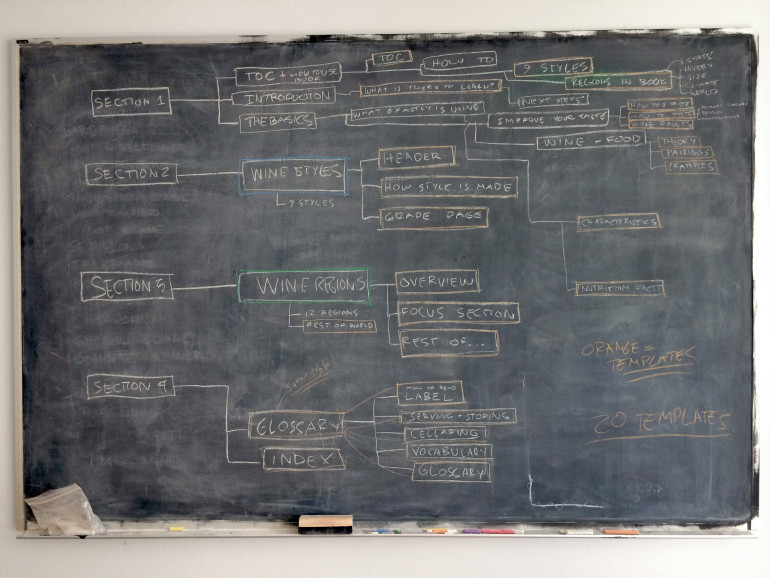 SECTION 1
TOC + HOW TO USE
BOOK
TOC
HOW TO
9 STYLES
REGIONS IN BOOK
SIZE
CLIMATE
INTRODUCTION
WHAT IS THERE TO LEARN?
NEXT STEPS
THE BASICS
WHAT EXACTLY IS WINE
IMPROVE YOUR TASTE
WINE FAULTS
WINE + FOOD
THEORY
PAIRINGS
EXAMPLES
CHARACTERISTICS
NUTRITION FACTS
SECTION 2
WINE STYLES
9 STYLES
HEADER
HOW STYLE IS MADE
GRADE PAGE
SECTION 3
WINE REGIONS
12 REGIONS
REST OF WORLD
OVERVIEW
FOCUS SECTION
REST OF...
SECTION 4
GLOSSARY
INDEX
HOW TO READ
LABEL
SERVING + STORING
CELLARING
VOCABULARY
GLOSSARY
ORANGE =
TEMPLATES
20 TEMPLATES